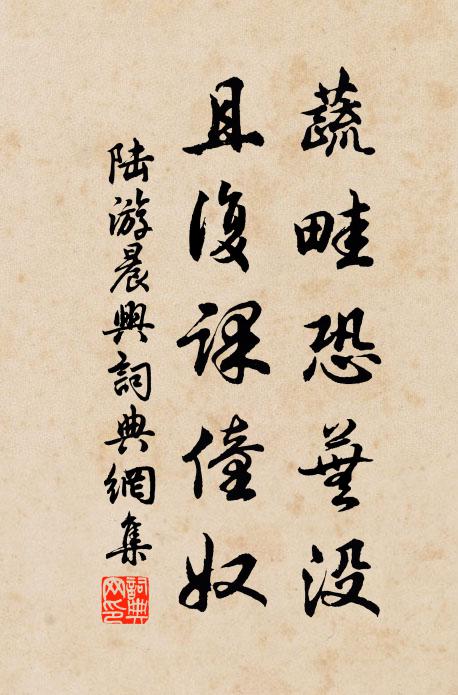 蔬畦恐蕪没
且復課僮奴
陆游晨興詞典網集
詞典網印